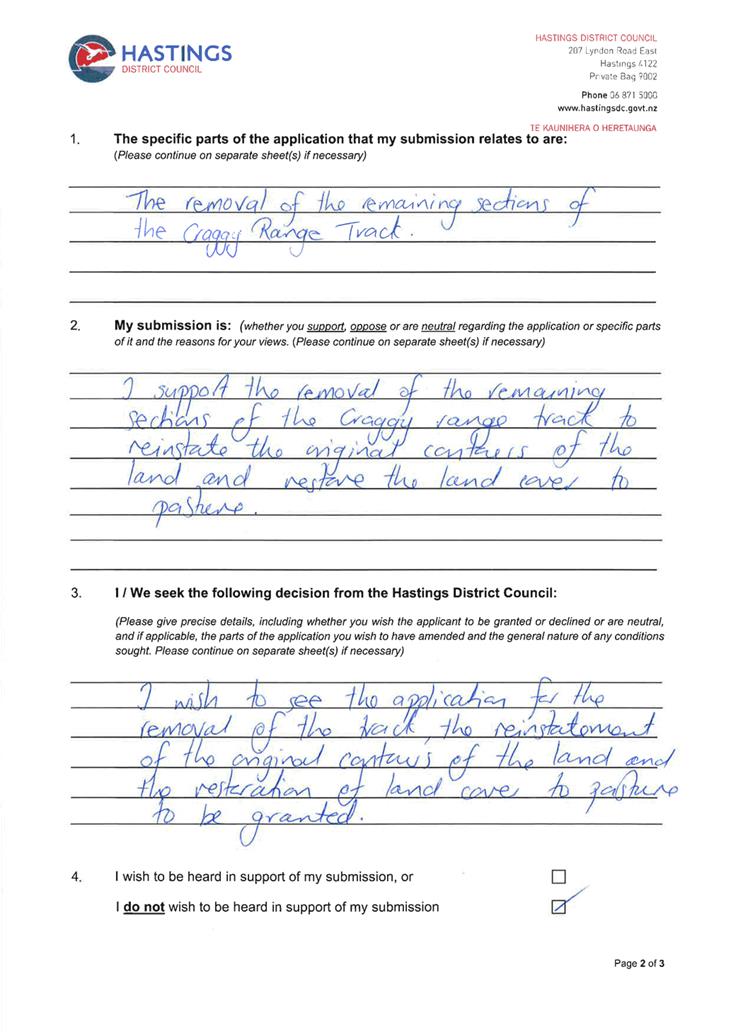 HASTINGS
DISTRICT COUNCIL
HASTINGS DISTRICT COUNCIL
207 Lyndon Road East
Hastings 4122
Private Bag 9002
Phone 06 871 5000
www.hastingsdc.govt.nz
TE KAUNIHERA O HERETAUNGA
1. The specific parts of the application that my submission relates to are:
(Please continue on separate sheet(s) if necessary)
The removal of the remaining sections of
the Craggy Range Track.
2. My submission is: (whether you support, oppose or are neutral regarding the application or specific parts
of it and the reasons for your views. (Please continue on separate sheet(s) if necessary)
I support the removal of the remaining
sections of the Craggy range track to
reinstate the original contours of the
land and restore the land cover to
pasture.
3. I / We seek the following decision from the Hastings District Council:
(Please give precise details, including whether you wish the applicant to be granted or declined or are neutral,
and if applicable, the parts of the application you wish to have amended and the general nature of any conditions
sought. Please continue on separate sheet(s) if necessary)
I wish to see the application for the
removal of the track, the reinstatement
of the original contours of the land and
the restoration of land cover to pasture
to be granted.
4. I wish to be heard in support of my submission, or
I do not wish to be heard in support of my submission
Page 2 of 3